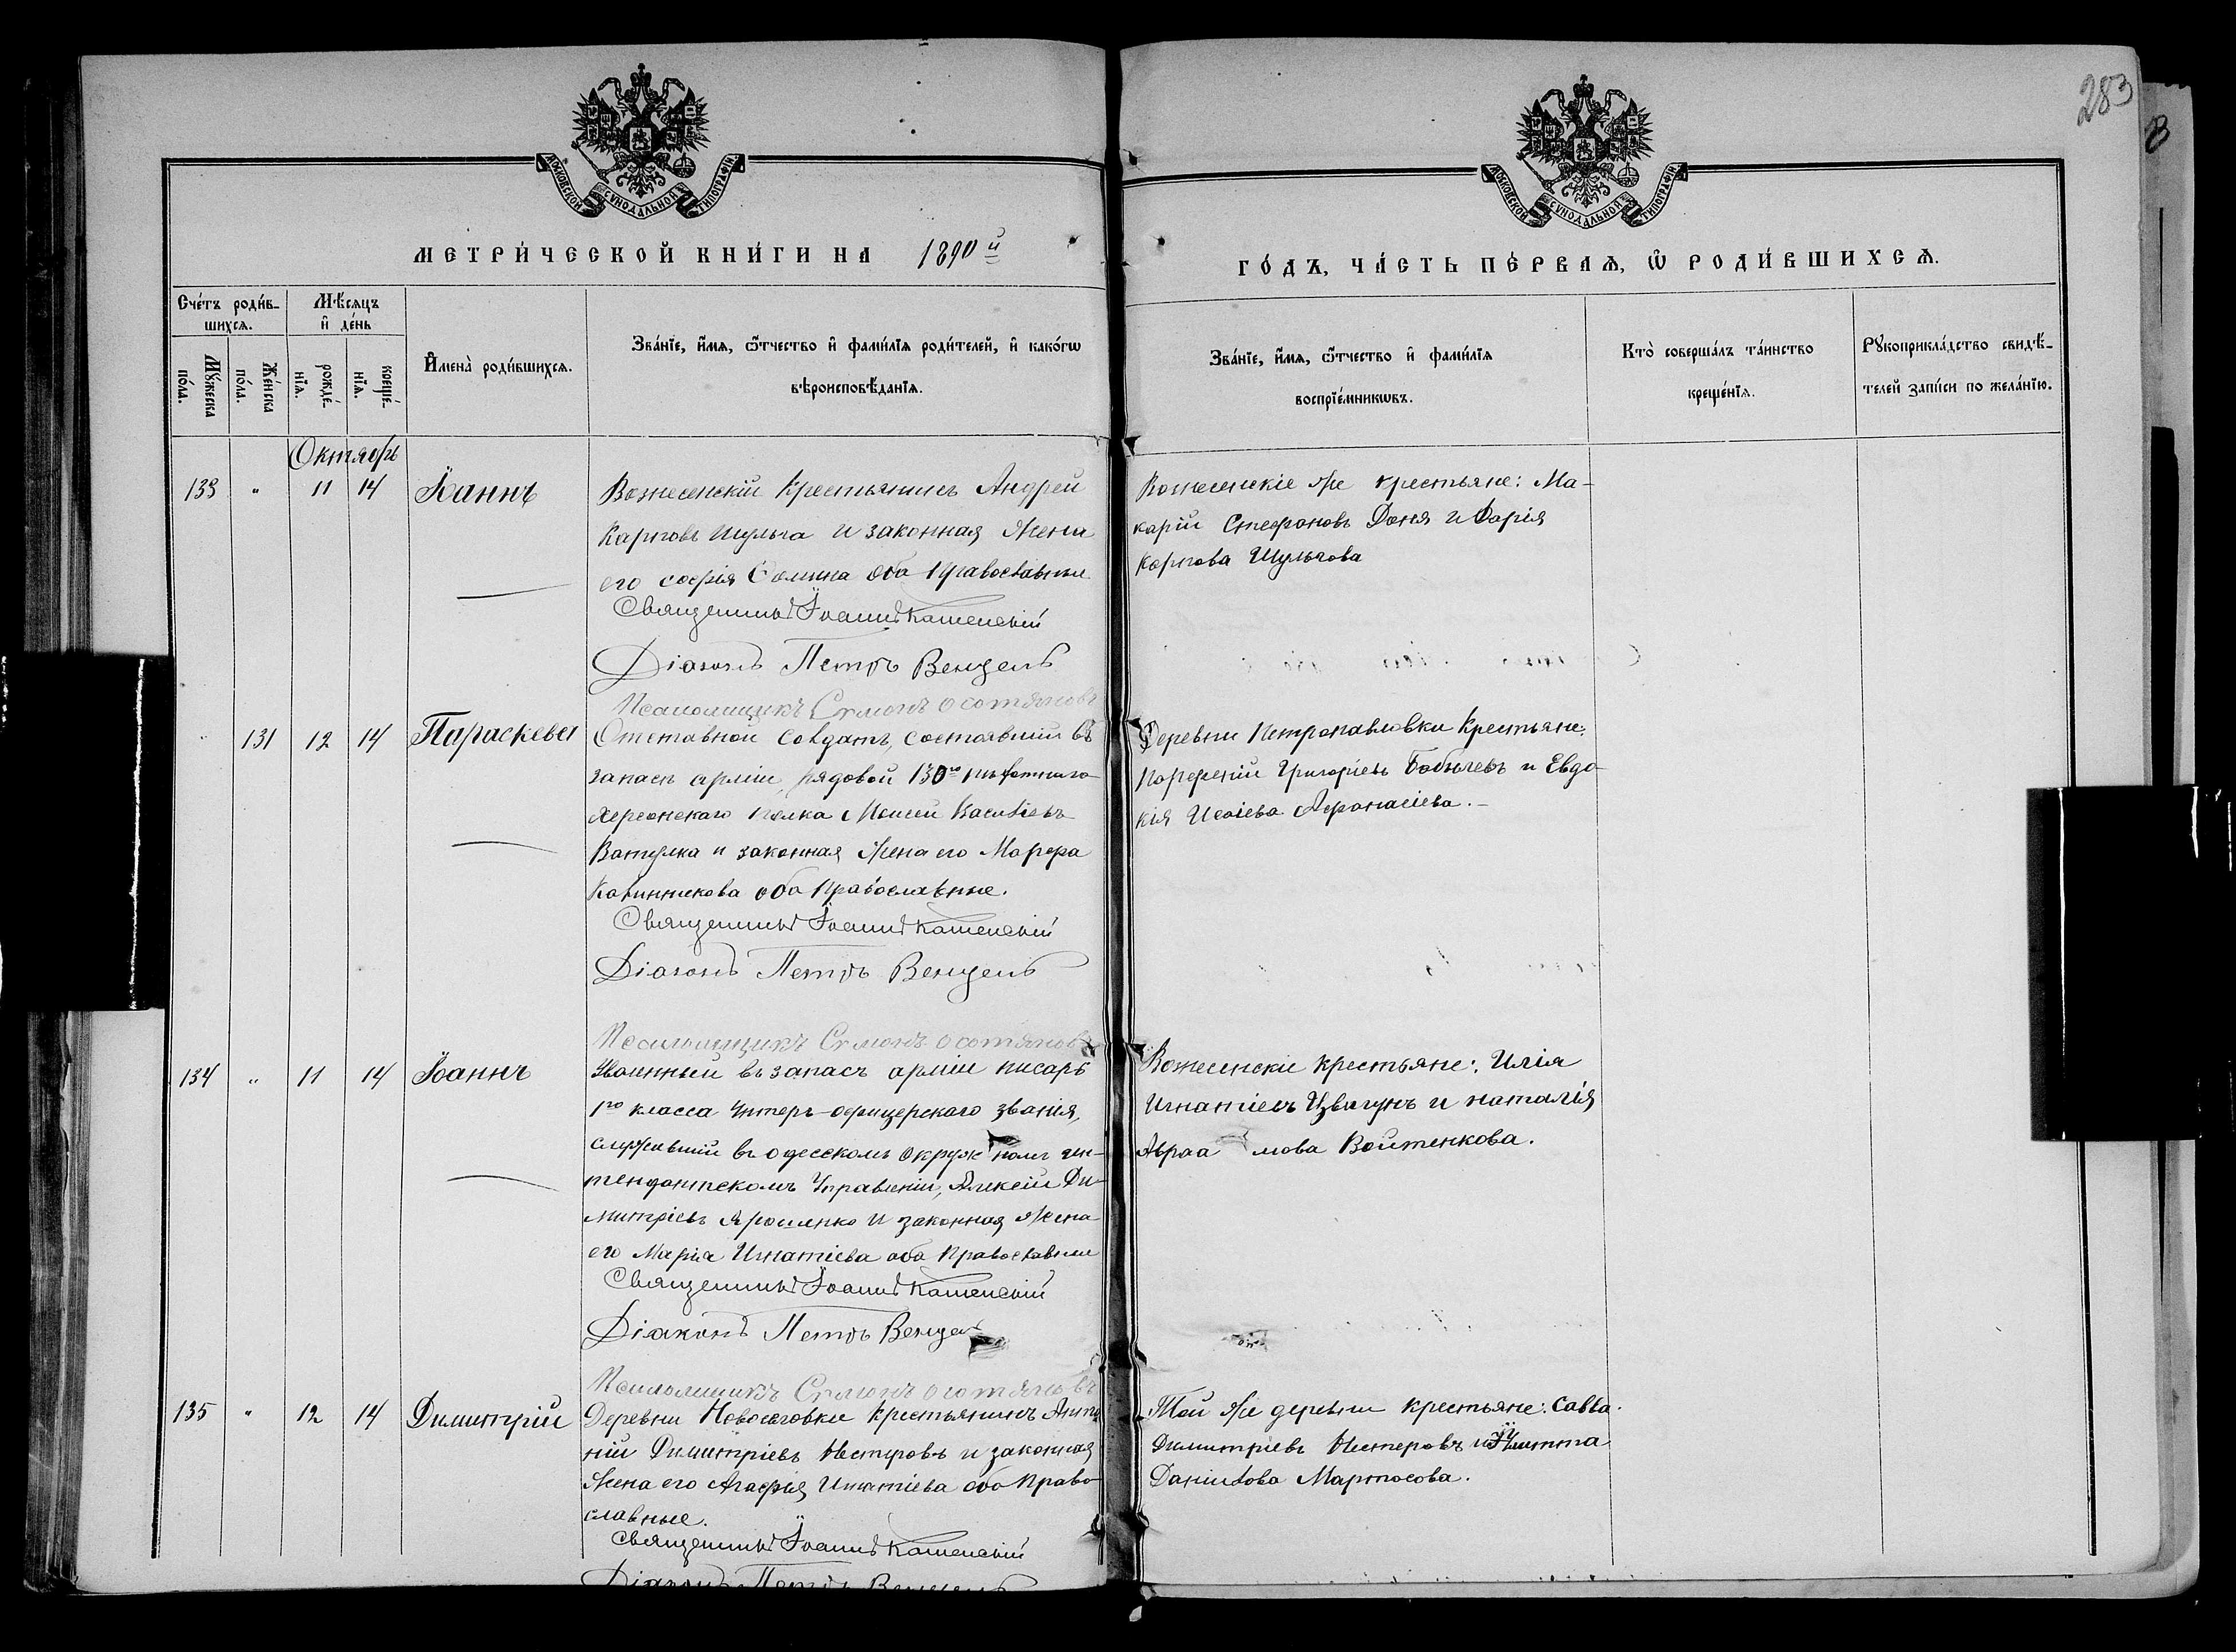 283
МОСКОВСКОЙ СѴНОДАЛЬНОЙ ТИПОГРАФІИ
МОСКОВСКОЙ СѴНОДАЛЬНОЙ ТИПОГРАФІИ
МЕТРИ́ЧЕСКОЙ КНИ́ГИ НА 1890й
ГО́ДЪ, ЧА́СТЬ ПЕ́РВАѦ, Ѡ РОДИ́ВШИХСѦ.
Сче́тъ роди́в-
шихсѧ.
Мѣ́сяцъ
и҆ де́нь
Мꙋ́жеска
по́ла.
Же́нска
по́ла.
рожде́-
нїѧ.
креще́-
нїѧ.
И҆мена̀ роди́вшихсѧ.
Зва́нїе, и҆́мѧ, ѻ҆́тчество и҆ фами́лїѧ роди́телей, и҆ како́гѡ
вѣроисповѣ́данїѧ.
Зва́нїе, и҆́мѧ, ѻ҆́тчество и҆ фами́лїѧ
воспрїе́мникѡвъ.
Кто̀ соверша́лъ та́инство
креще́нїѧ.
Рꙋкоприкла́дство свидѣ́-
телей за́писи по жела́нїю.
Октябрь
133 " 11 14 Іоаннъ
Вознесенскій крестьянинъ Андрей
Карповъ Шульга и законная жена
его Софія Фомина оба православные
Священникъ Іоаннъ Каменскій
Діаконъ Петръ Венцель
Псаломщикъ Сѵмонъ
Вознесенскіе же крестьяне: Ма-
карій Стефановъ Доня и Дарія
Карпова Шульгова
131 12 14 Параскева
Отставной солдатъ, состоявший въ
запасѣ арміи, рядовой 130го пѣхотнаго
Херсонскаго полка Моисей Василіевъ
Ватулка и законная жена его Марфа
Калинникова оба православные.
Священникъ Іоаннъ Каменскій
Діаконъ Петръ Венцель
Псаломщикъ Сѵмонъ
Деревни Петропавловки крестьяне:
Порфирій Григоріевъ Бобычевъ и Евдо-
кія Исаіева Афанасіева.-
134 " 11 14 Іоаннъ
Уволенный въ запасъ арміи писарь
1го класса Унтеръ-офицерскаго званія,
служившій въ одесскомъ окружномъ ин-
тендантскомъ Управленіи, Алексій Ди-
митріевъ Ярошенко и законная жена
его Марія Игнатіева оба православные
Священникъ Іоаннъ Каменскій
Діаконъ Петръ Венцель
Псаломщикъ Сѵмонъ
Вознесенскіе крестьяне: Илія
Игнатіевъ Цвигунъ и Наталія
Авраамова Войтенкова.
135 " 12 14 Димитрій
Деревни Новосёловки крестьянинъ Анто
ній Димитріевъ Нестеровъ и законная
жена его Агафія Игнатіева оба право-
славные.
Священникъ Іоаннъ Каменскій
Діаконъ Петръ Венцель
Той же деревни крестьяне: Савва
Димитріевъ Нестеровъ и
Даніилова Мартосова.